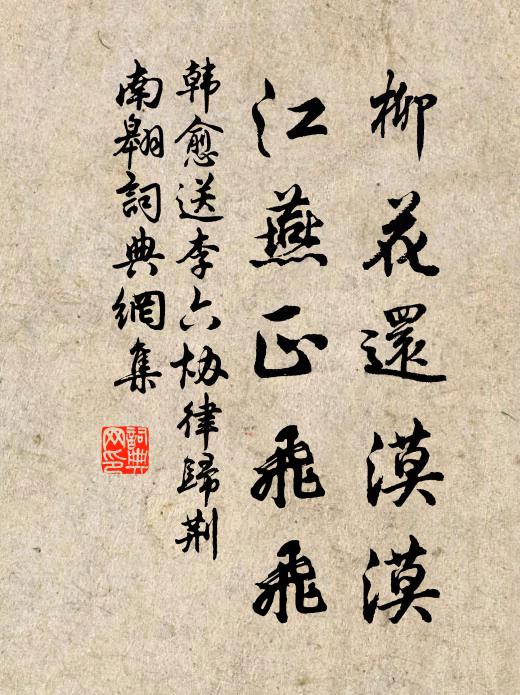 柳花還漠漠
江燕正飛飛
韩愈送李六協律歸荆
南翱詞典網集
詞典网印